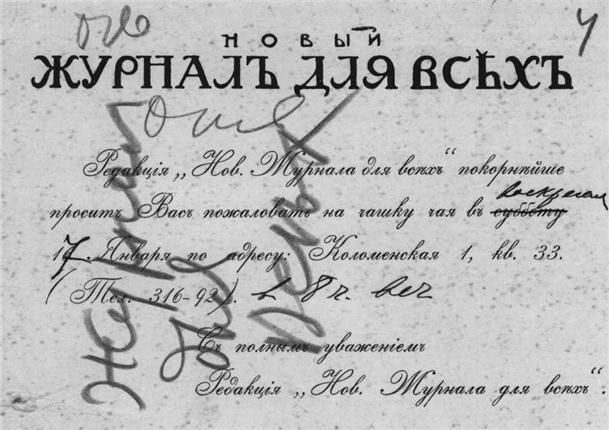 НОВЫЙ
ЖУРНАЛЪ ДЛЯ ВСѢХЪ
Редакція „Нов. Журнала для всѣхъ“ покорнѣйше
проситъ Васъ пожаловать на чашку чая въ субботу
17 Января по адресу: Коломенская 1, кв. 33.
(Тел. 316-92). в 8 ч. веч
Съ полнымъ уваженіемъ
Редакція „Нов. Журнала для всѣхъ“.